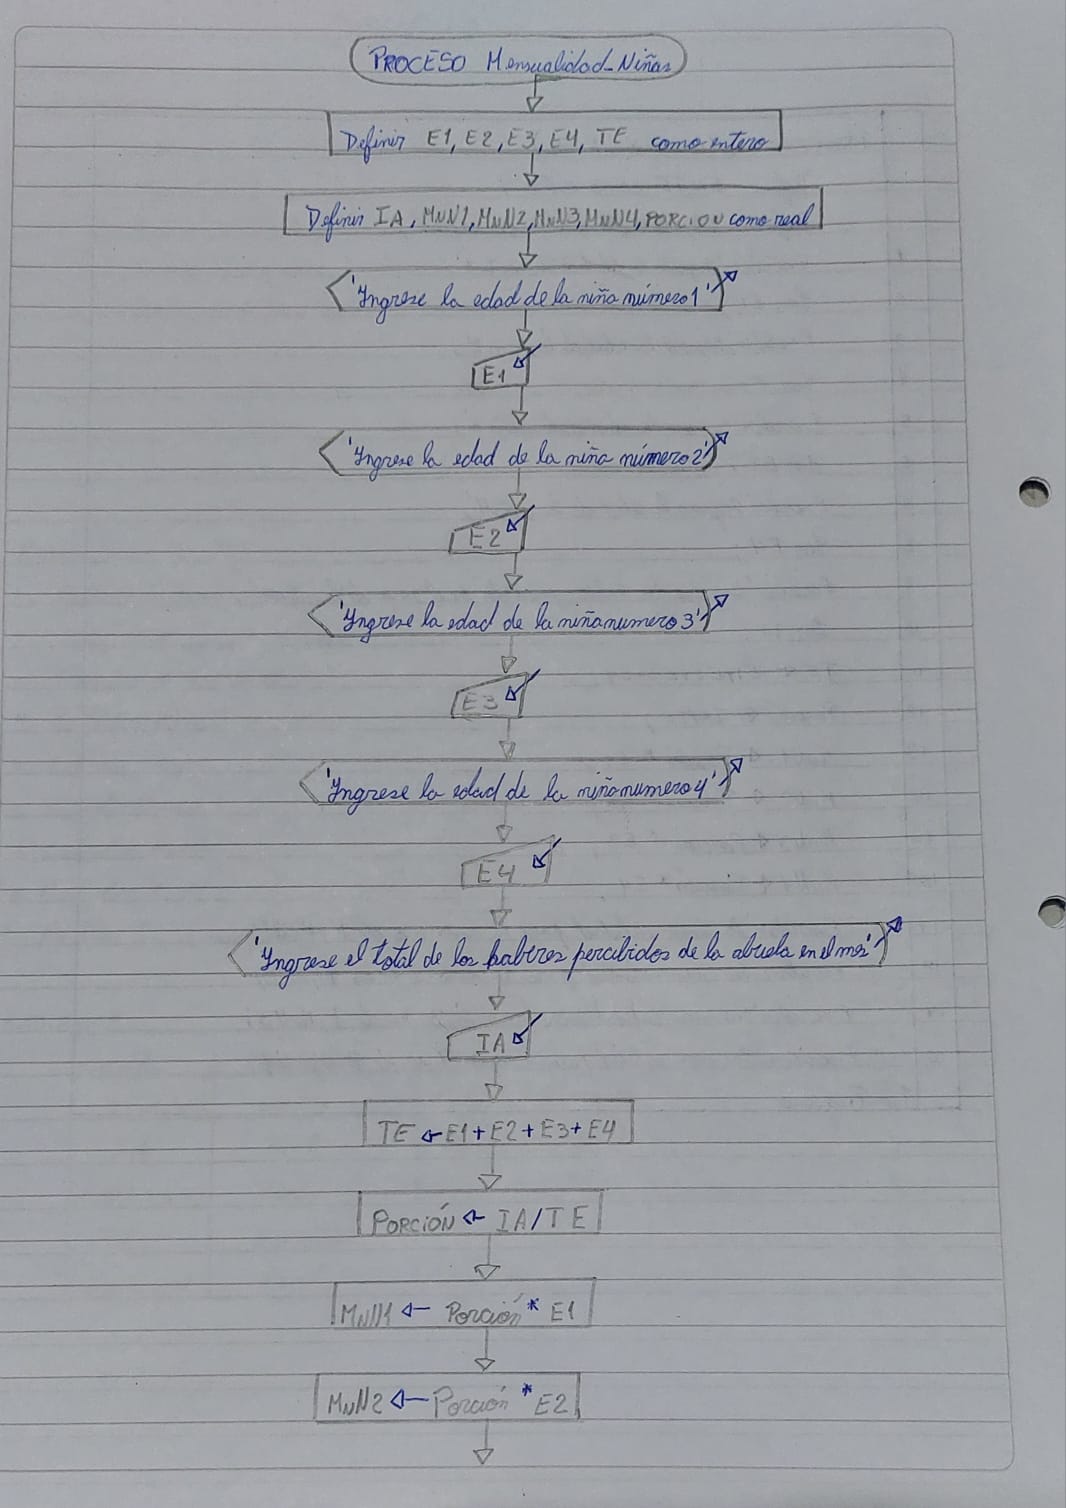 PROCESO Mensualidad_Niñas
Definir E1, E2, E3, E4, TE como entero
Definir IA, MNN1, MNN2, MNN3, MNN4, PORCION como real
'Ingrese la edad de la niña número 1'
E1
'Ingrese la edad de la niña número 2'
E2
'Ingrese la edad de la niña numero 3'
E3
'Ingrese la edad de la niña numero 4'
E4
'Ingrese el total de los haberes percibidos de la abuela en el mes'
IA
TE ← E1 + E2 + E3 + E4
PORCIÓN ← IA / TE
MNN1 ← Porción * E1
MNN2 ← Porción * E2